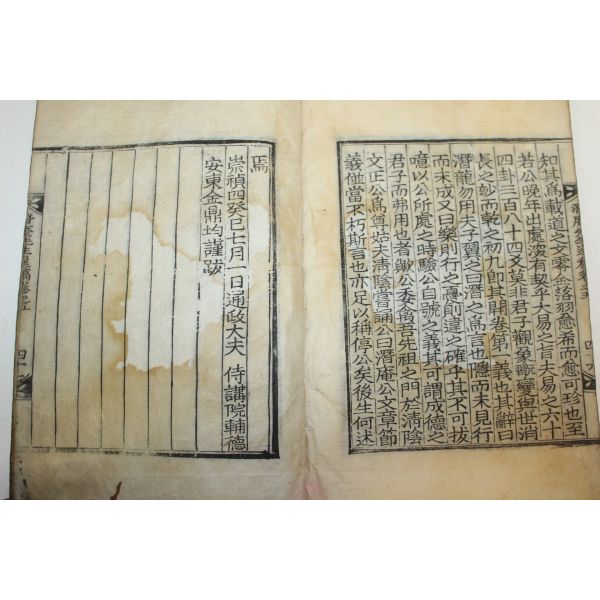 知其爲載道之文零金落羽愈希而愈可珍也至
若公晚年出處深有契乎大易之旨夫易之六十
四卦三百八十四爻莫非君子觀象翫變與世消
長之妙而乾之初九卽其開卷第一義也其辭曰
潛龍勿用夫子翼之曰潛之爲言也隱而未見行
而未成又曰樂則行之憂則違之確乎其不可拔
噫以公所處之時驗公自號之義其可謂成德之
君子而弗用也者歟公委禽吾先祖之門於淸陰
文正公爲尊姑夫淸陰嘗誦公曰潛庵公文章節
義俱當不朽斯言也亦足以稱停公矣後生何述
焉
崇禎四癸巳七月一日通政大夫 侍講院輔德
安東金鼎均謹跋
四